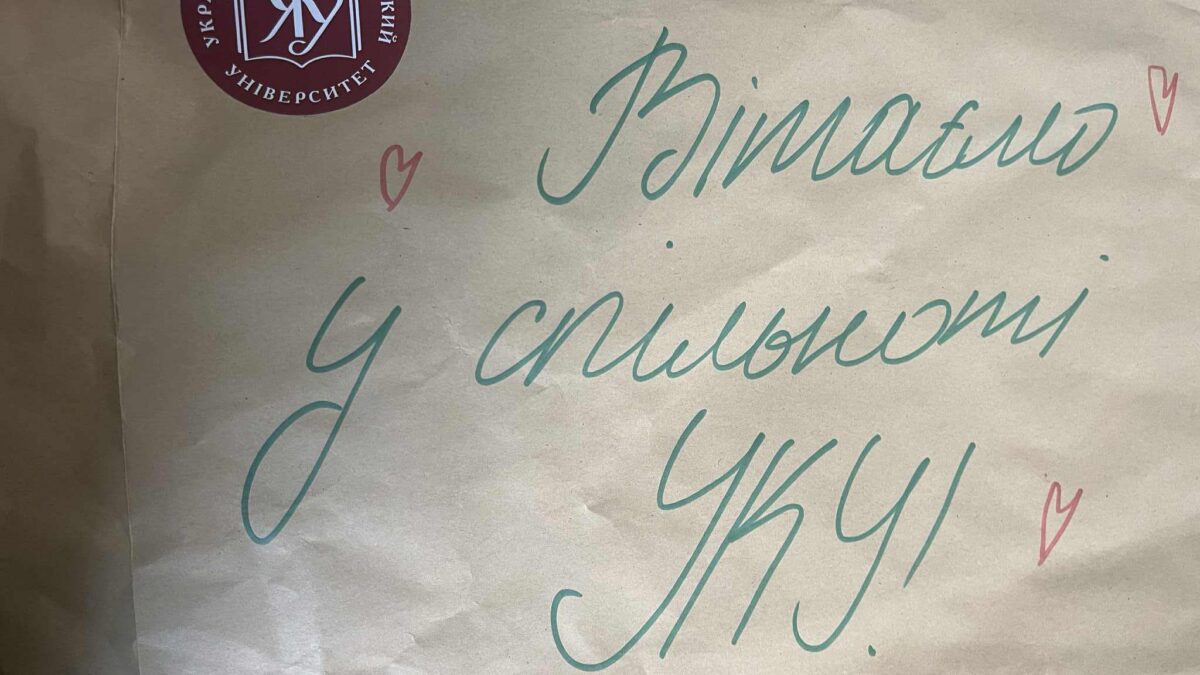 УКРА КИЙ
УКУ
УНІВЕРСИТЕТ
Вітаємо
у спільноті
УКУ!